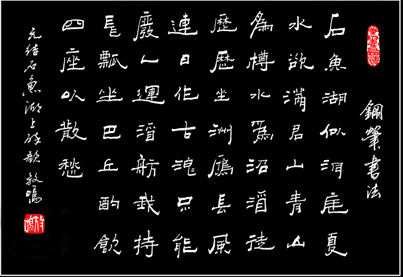 鋼筆書法
石魚湖似洞庭夏
水欲滿君山青山
為樽水爲沼酒徒
歷歷坐洲島長風
連日作大浪不能
廢人運酒舫我持
長瓢坐巴丘酌飲
四座以散愁
元結石魚湖上醉歌